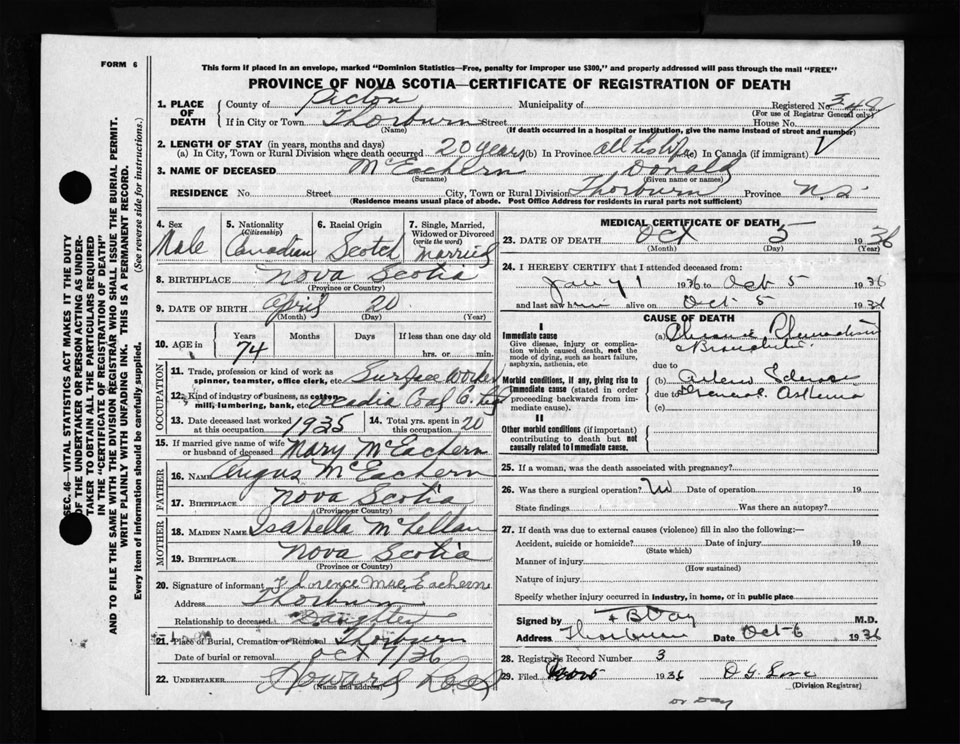 FORM 6
This form if placed in an envelope, marked "Dominion Statistics—Free, penalty for improper use $300," and properly addressed will pass through the mail "FREE"
PROVINCE OF NOVA SCOTIA—CERTIFICATE OF REGISTRATION OF DEATH
1. PLACE OF DEATH
County of Pictou Municipality of Registered No. 348
(For use of Registrar General only)
If in City or Town Thorburn Street House No.
(Name) (If death occurred in a hospital or institution, give the name instead of street and number)
2. LENGTH OF STAY (in years, months and days)
(a) In City, Town or Rural Division where death occurred 20 years (b) In Province all his life (c) In Canada (if immigrant)
3. NAME OF DECEASED McEachern Donald
(Surname) (Given name or names)
RESIDENCE No. Street City, Town or Rural Division Thorburn Province N.S.
(Residence means usual place of abode. Post Office Address for residents in rural parts not sufficient)
4. Sex Male
5. Nationality (Citizenship) Canadian
6. Racial Origin Scotch
7. Single, Married, Widowed or Divorced (write the word) Married
8. BIRTHPLACE Nova Scotia
(Province or Country)
9. DATE OF BIRTH April 20
(Month) (Day) (Year)
10. AGE in Years 74 Months Days If less than one day old
hrs. or min.
OCCUPATION
11. Trade, profession or kind of work as spinner, teamster, office clerk, etc Surface worker
12. Kind of industry or business, as cotton mill, lumbering, bank, etc Acadia Coal Co.
13. Date deceased last worked at this occupation 1935
14. Total yrs. spent in this occupation 20
15. If married give name of wife or husband of deceased Mary McEachern
FATHER
16. NAME Angus McEachern
17. BIRTHPLACE Nova Scotia
(Province or Country)
MOTHER
18. MAIDEN NAME Isabella McLellan
19. BIRTHPLACE Nova Scotia
(Province or Country)
20. Signature of informant Florence MacEacherne
Address Thorburn
Relationship to deceased Daughter
21. Place of Burial, Cremation or Removal Thorburn
Date of burial or removal Oct 7/36
22. UNDERTAKER Howard Ross
(Name and address)
MEDICAL CERTIFICATE OF DEATH
23. DATE OF DEATH Oct 5 1936
(Month) (Day)
24. I HEREBY CERTIFY that I attended deceased from:
Jany 1 1936 to Oct 5 1936
and last saw him alive on Oct 5 1936
CAUSE OF DEATH
I
Immediate cause
Give disease, injury or complication which caused death, not the mode of dying, such as heart failure, asphyxia, asthenia, etc
(a) Chronic Rheumatism
Bronchitis
due to
Morbid conditions, if any, giving rise to immediate cause (stated in order proceeding backwards from immediate cause).
(b)
due to Asthma
(c)
II
Other morbid conditions (if important) contributing to death but not causally related to immediate cause.
25. If a woman, was the death associated with pregnancy?
26. Was there a surgical operation? No Date of operation 19
State findings Was there an autopsy?
27. If death was due to external causes (violence) fill in also the following:—
Accident, suicide or homicide? Date of injury 19
(State which)
Manner of injury
(How sustained)
Nature of injury
Specify whether injury occurred in industry, in home, or in public place
Signed by M.D.
Address Thorburn Date Oct 6 1936
28. Registrar's Record Number 3
29. Filed 1936
(Division Registrar)
SEC. 46—VITAL STATISTICS ACT MAKES IT THE DUTY
OF THE UNDERTAKER OR PERSON ACTING AS UNDERTAKER TO OBTAIN ALL THE PARTICULARS REQUIRED
IN THE "CERTIFICATE OF REGISTRATION OF DEATH"
AND TO FILE THE SAME WITH THE DIVISION REGISTRAR WHO SHALL ISSUE THE BURIAL PERMIT.
WRITE PLAINLY WITH UNFADING INK. THIS IS A PERMANENT RECORD.
Every item of information should be carefully supplied. (See reverse side for instructions.)